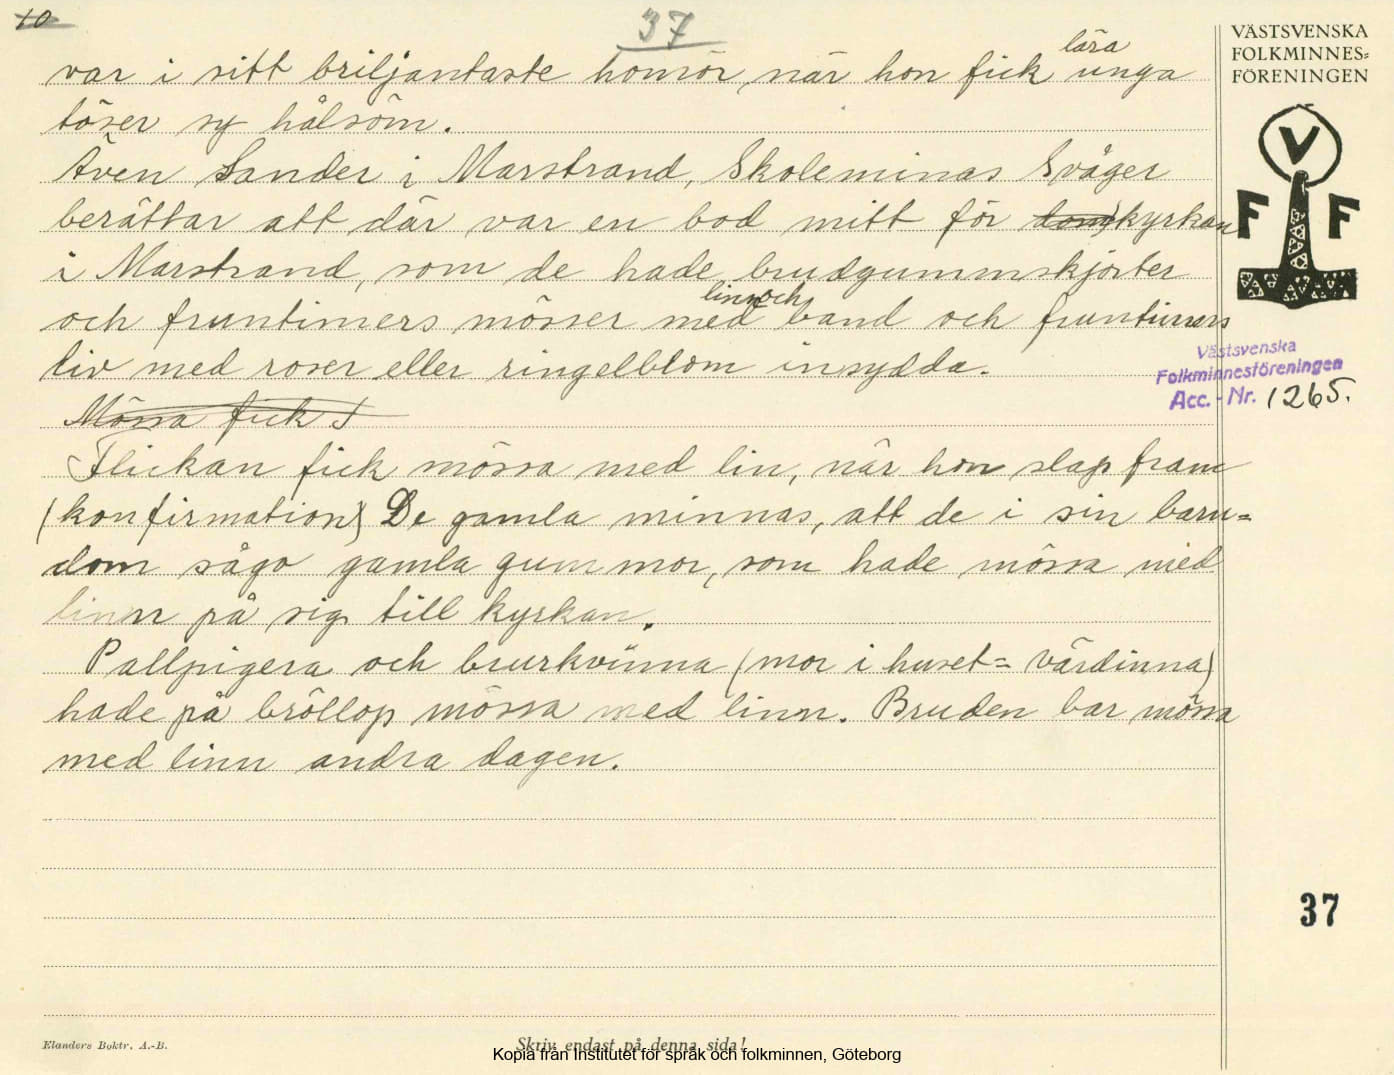 10
37
VÄSTSVENSKA
FOLKMINNES=
FÖRENINGEN
lära
var i sitt briljantaste homör, när hon fick unga
töser sy hålsöm.
Även Sander i Marstrand, Skoleminas Svåger
berättar att där var en bod mitt för domkyrkan
i Marstrand, som de hade brudgummskjorter
linn och
och fruntimers mösser med band och fruntimers
liv med roser eller ringelblom insydda.
Mössa fick
Flickan fick mössa med lin, när hon slap fram
(konfirmation) De gamla minnas, att de i sin barn=
dom sågo gamla gummor, som hade mössa med
linn på sig till kyrkan.
Pallpigera och brurkvinna (mor i huset= värdinna)
hade på bröllop mössa med linn. Bruden bar mössa
med linn andra dagen.
V
F F
Västsvenska
Folkminnesföreningen
Acc.-Nr. 1265.
37
Elanders Boktr. A.-B.
Skriv endast på denna sida!
Kopia från Institutet för språk och folkminnen, Göteborg